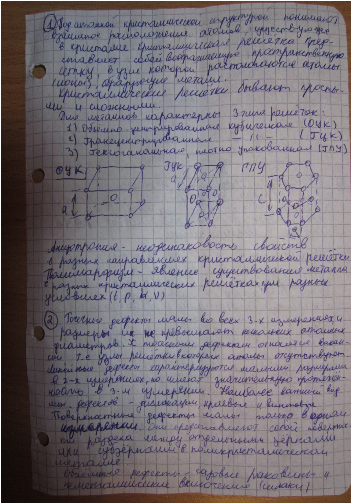 ① Под атомной кристаллической структурой понимают
взаимное расположение атомов, существующее
в кристалле. Кристаллическая решётка пред-
ставляет собой воображаемую пространственную
сетку, в узле которой располагаются атомы
(ионы), образующие металл.
Кристаллические решётки бывают просты-
ми и сложными.
Для металлов характерны 3 типа решёток:
1) Объемно-центрированная кубическая (ОЦК)
2) Гранецентрированная —"— (ГЦК)
3) Гексагональная, плотно упакованная (ГПУ)
ОЦК ГЦК ГПУ
a a c
a
Анизотропия - неодинаковость свойств
в разных направлениях кристаллической решётки
Полиморфизм - явление существования металла
в разных кристаллических решётках при разных
условиях (t, p,
② Точечные дефект малы во всех 3-х измерениях и
размеры их не превышают нескольких атомных
диаметров. К точечным дефектам относятся вакан-
сии, т.е. узлы решётки в которых атомы отсутствуют.
Линейные дефект характеризуются малыми размерами
в 2-х измерениях, но имеют значительную протяжен-
ность в 3-м измерении. Наиболее важный вид
дефект - дислокации краевые и винтовые
Поверхностные дефекты малы только в одном
измерении. Они представляют собой
раздела между отдельными зернами
или субзернами в поликристаллическом
металле
Объемные дефекты -
неметаллические включения